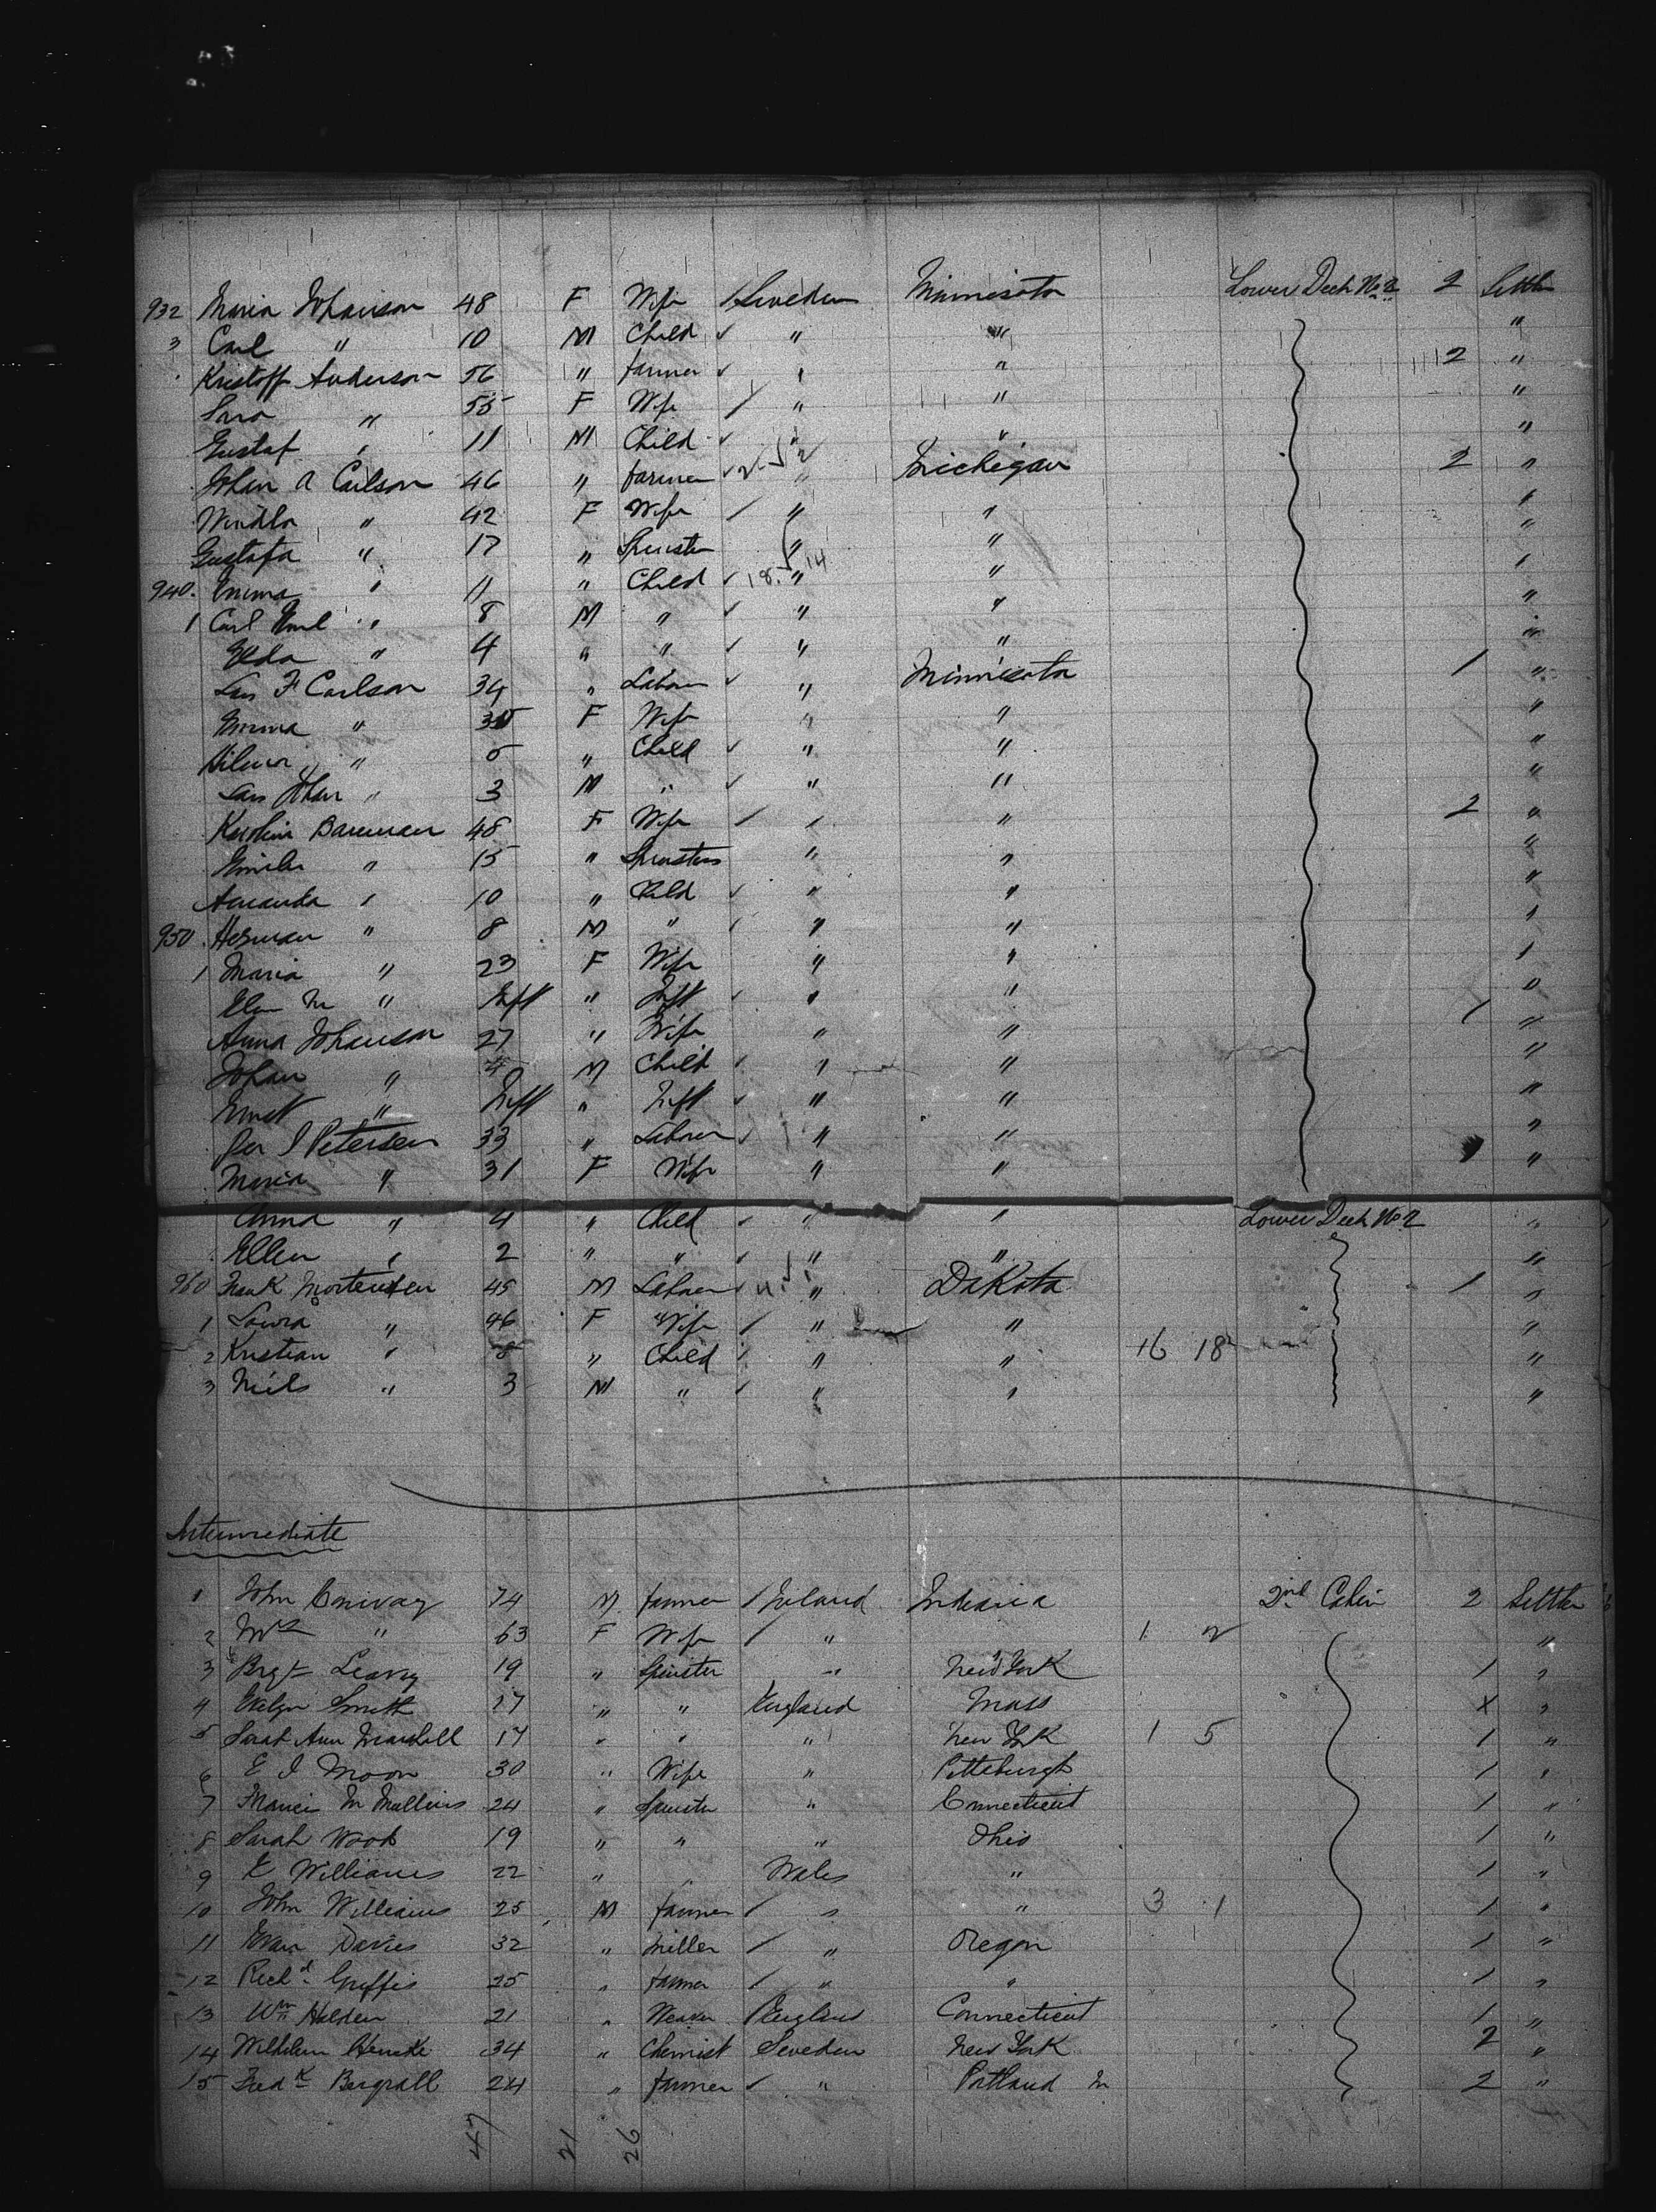 932 Maria Johanson 48 F Wife / Sweden Minnesota Lower Deck No 2 2 Settler
3 Carl " 10 M Child ✓ " " "
Kristoff Anderson 56 " farmer ✓ " " 2 "
Sara " 55 F Wife / " " "
Gustaf " 11 M Child ✓ " " "
Johan A Carlson 46 " farmer ✓ " Michigan 2 "
" 42 F Wife / " " "
Gustafa " 17 " Spinster " " "
940 Emma " 11 " Child ✓ 18 " 14 " "
1 Carl Emil " 8 M " ✓ " " "
Elda " 4 " " ✓ " " "
Lars F Carlson 34 " Laborer ✓ " Minnisota 1 "
Emma " 35 F Wife " " "
Hilma " 5 " Child ✓ " " "
Lars Johan " 3 M " ✓ " " "
Karolina Bauman 48 F Wife / " " 2 "
Emilia " 15 " Spinster " " "
Amanda " 10 " Child ✓ " " "
950 Herman " 8 M " ✓ " " "
1 Maria " 23 F Wife " " "
M " Inft " Inft ✓ " " "
Anna Johanson 27 " Wife " " 1 "
Johan " 4 M Child ✓ " " "
Ernst " Inft " Inft ✓ " " "
Per J Petersen 33 " Laborer ✓ " " "
Maria " 31 F Wife " " "
Anna " 4 " Child ✓ " " Lower Deck No 2 "
Ellen " 2 " " ✓ " " "
960 Mortensen 45 M Laborer ✓ " Dakota 1 "
1 Laura " 46 F Wife / " " "
2 Kristian " 8 " Child ✓ " " 16 18 "
3 Nils " 3 M " ✓ " " "
Intermediate
1 John Conway 74 M farmer / Ireland Indiana 2nd Cabin 2 Settler
2 Mrs " 63 F Wife / " " 1 2 "
3 Brgt Leavy 19 " Spinster " New York 1 "
4 Evelyn Smith 27 " " England Mass X "
5 Sarah Ann Marshall 17 " " " New York 1 5 1 "
6 E J Moon 30 " Wife " Pittsburgh 1 "
7 M Mullins 24 " Spinster " Connecticut 1 "
8 Sarah Wood 19 " " " Ohio 1 "
9 E Williams 22 " " Wales " 1 "
10 John Williams 25 M farmer / " " 3 1 1 "
11 Evan Davies 32 " Miller / " Oregon 1 "
12 Richd Griffis 25 " farmer / " " 1 "
13 Wm Holden 21 " Weaver / England Connecticut 1 "
14 Wilhelm 34 " Chemist Sweden New York 2 "
15 Fredk Bergvall 24 " farmer ✓ " Portland M 2 "
47 21 26